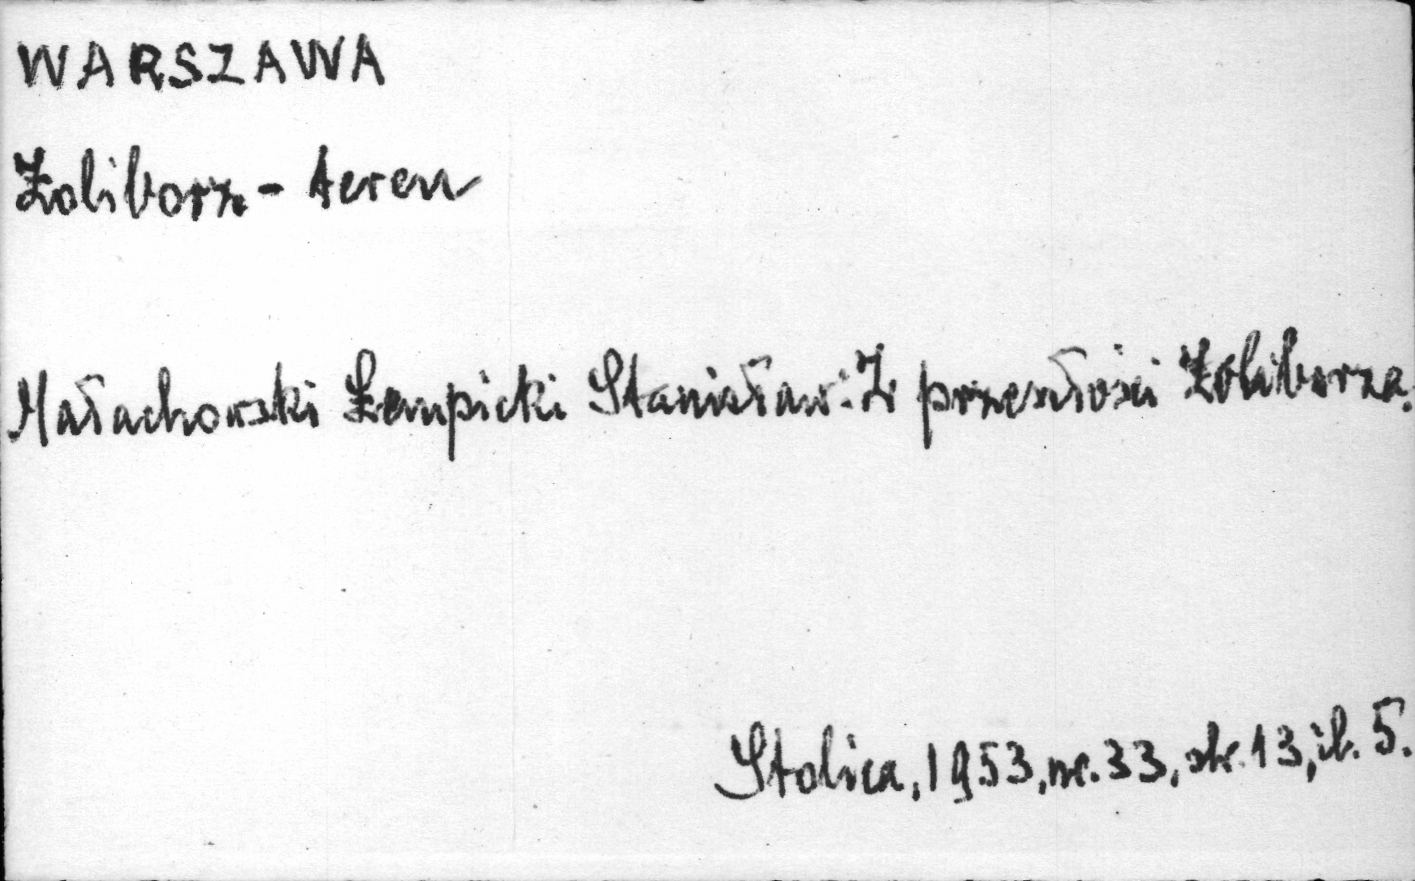 WARSZAWA
Żoliborz - teren
Małachowski Łempicki Stanisław: Z przeszłości Żoliborza.
Stolica, 1953, nr. 33, str. 13, il. 5.